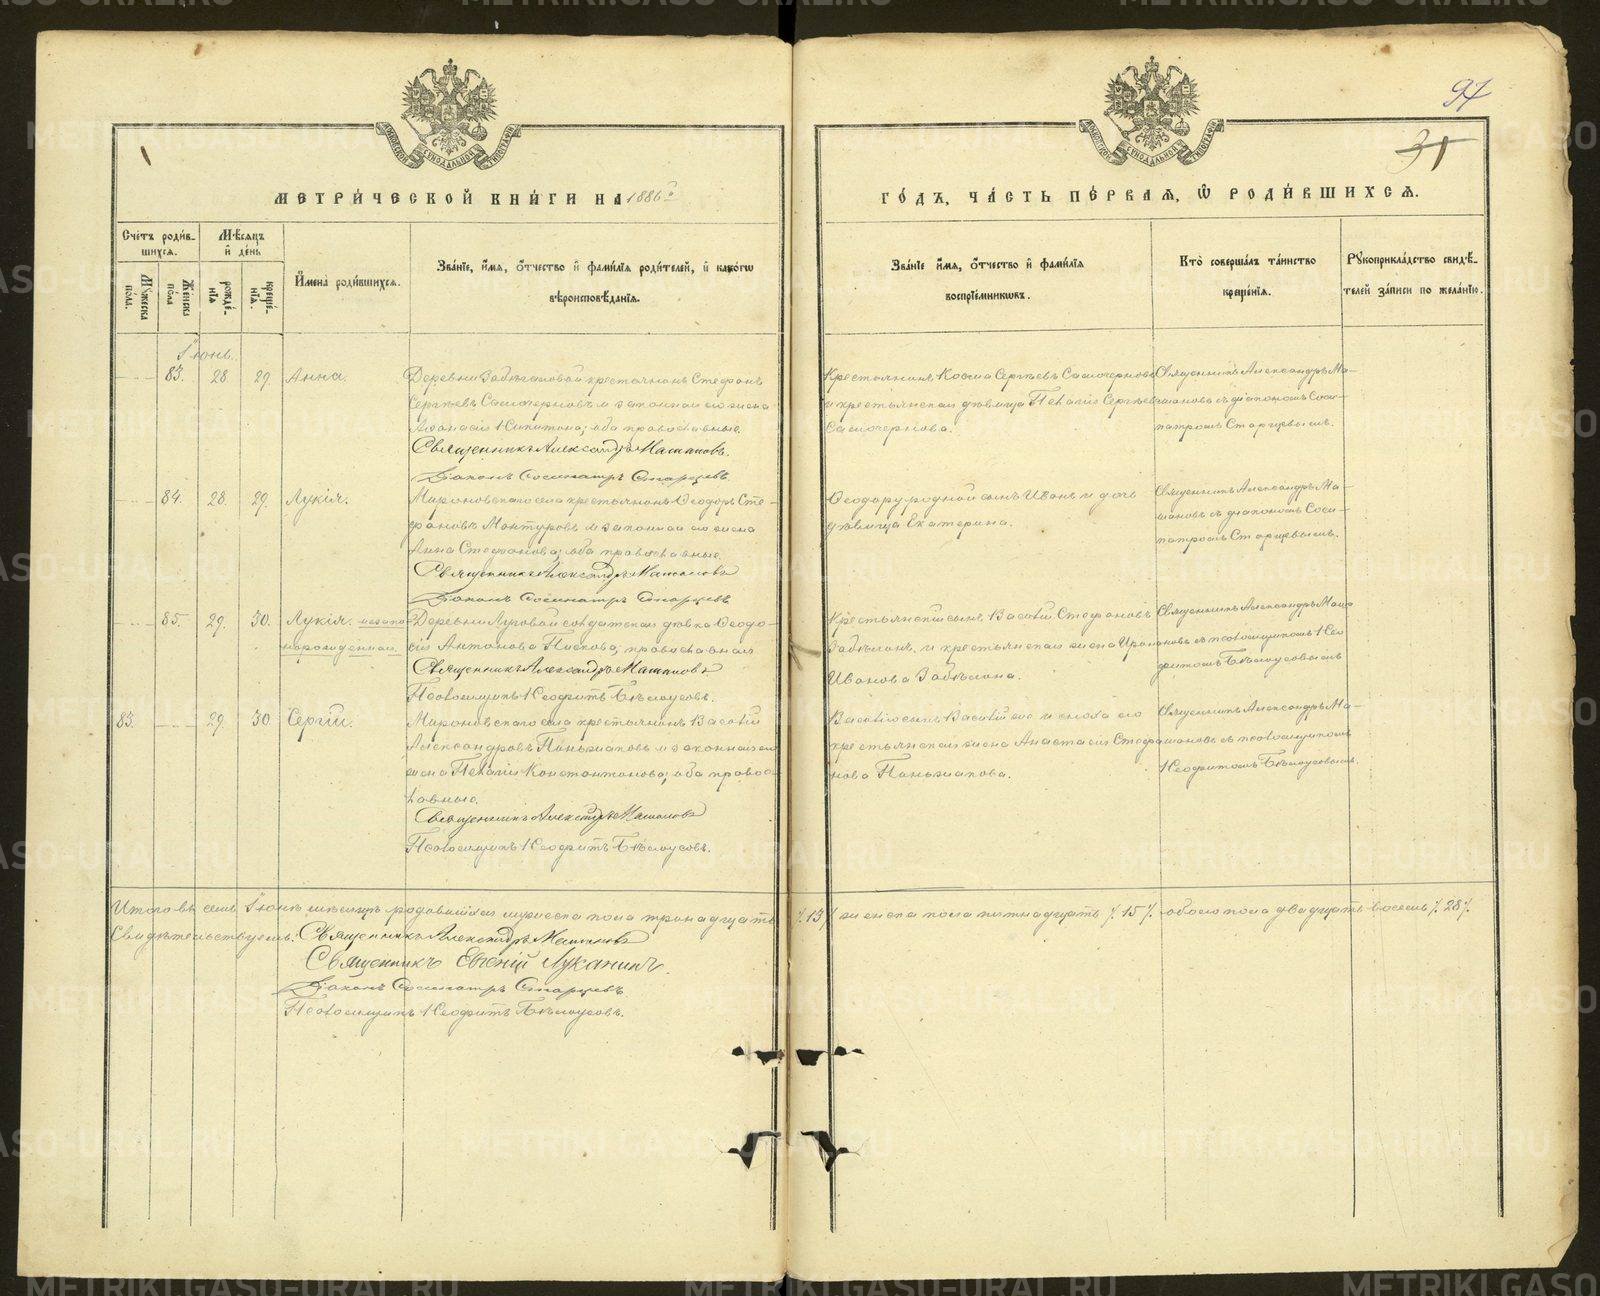 97
31
МЕТРИЧЕСКОЙ КНИГИ НА 1886й
ГОДЪ, ЧАСТЬ ПЕРВАЯ, Ѡ РОДИВШИХСЯ.
Счетъ родив-
шихся.
Мужеска
пола.
Женска
пола
Мѣсяцъ
и день
рожде-
нія
креще-
нія.
Имена родившихся.
Званіе, имя, отчество и фамилія родителей, и какого
вѣроисповѣданія.
Званіе имя, отчество и фамилія
воспріемниковъ.
Кто совершалъ таинство
крещенія.
Рукоприкладство свидѣ-
телей записи по желанію.
Іюнь.
83. 28 29. Анна.
Деревни крестьянинъ Стефанъ
Сергѣевъ Самочерновъ и законная его жена
Никитина; оба православные.
Священникъ Александръ Маминовъ.
Діаконъ Сосипатръ Старцевъ
Крестьянинъ Косма Сергѣевъ Самочерновъ
и крестьянская дѣвица Пелагія Сергѣева
Самочернова.
Священникъ Александръ Ма-
миновъ съ діакономъ Соси-
патромъ Старцевымъ.
84. 28 29. Лукія.
Мироновскаго села крестьянинъ Ѳеодоръ Сте-
фановъ Мантуровъ и законная его жена
Анна Стефанова; оба православные.
Священникъ Александръ Маминовъ
Діаконъ Сосипатръ Старцевъ
Ѳеодору родной сынъ Иванъ и дочь
дѣвица Екатерина.
Священникъ Александръ Ма-
миновъ съ діакономъ Соси-
патромъ Старцевымъ.
85. 29. 30. Лукія. незаконнорожденная.
Деревни Луговой солдатская дѣвка Ѳеодо-
сія Антонова Пискова; православная
Священникъ Александръ Маминовъ
Псаломщикъ Неофитъ Бѣлоусовъ.
Крестьянскій сынъ Василій Стефановъ
Забѣлинъ и крестьянская жена
Иванова Забѣлина.
Священникъ Александръ Мами
новъ съ псаломщикомъ Нео
фитомъ Бѣлоусовымъ
83. 29 30 Сергій.
Мироновскаго села крестьянинъ Василій
Александровъ Паньшаковъ и законная его
жена Пелагія Константинова; оба правос-
лавные.
Священникъ Александръ Маминовъ
Псаломщикъ Неофитъ Бѣлоусовъ.
Василію сынъ Василій же и сноха его
крестьянская жена Анастасія Стефа
нова Паньшакова.
Священникъ Александръ Ма-
миновъ съ псаломщикомъ
Неофитомъ Бѣлоусовымъ.
Итого въ семъ Іюнѣ мѣсяцѣ родившихся мужеска пола тринадцать /.13/. женска пола пятнадцать /.15/. обоего пола двадцать восемь /.28/.
Свидѣтельствуемъ: Священникъ Александръ Маминовъ
Священникъ Евгеній Луканинъ.
Діаконъ Сосипатръ Старцевъ
Псаломщикъ Неофитъ Бѣлоусовъ.
METRIKI.GASO-URAL.RU